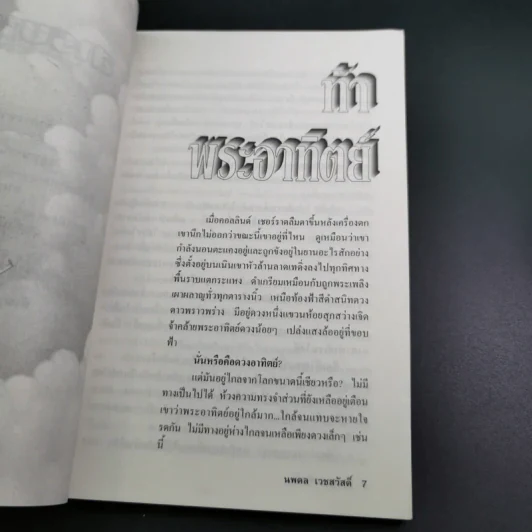 ท้า
พระอาทิตย์
เมื่อคอลลินด์ เซอร์ราดลืมตาขึ้นหลังเครื่องตก
เขานึกไม่ออกว่าขณะนี้เขาอยู่ที่ไหน ดูเหมือนว่าเขา
กำลังนอนตะแคงอยู่และถูกขังอยู่ในยานอะไรสักอย่าง
ซึ่งตั้งอยู่บนเนินเขาหัวล้านลาดเทดิ่งลงไปทุกทิศทาง
พื้นราบแตกระแหง ดำเกรียมเหมือนกับถูกพระเพลิง
เผาผลาญทั่วทุกตารางนิ้ว เหนือท้องฟ้าสีดำสนิทดวง
ดาวพราวพร่าง มีอยู่ดวงหนึ่งแขวนห้อยสุกสว่างเจิด
จ้าคล้ายพระอาทิตย์ดวงน้อยๆ เปล่งแสงล้ออยู่ที่ขอบ
ฟ้า
นั่นหรือคือดวงอาทิตย์?
แต่มันอยู่ไกลจากโลกขนาดนี้เชียวหรือ? ไม่มี
ทางเป็นไปได้ ห้วงความทรงจำส่วนที่ยังเหลืออยู่เตือน
เขาว่าพระอาทิตย์อยู่ใกล้มาก...ใกล้จนแทบจะหายใจ
รดกัน ไม่มีทางอยู่ห่างไกลจนเหลือเพียงดวงเล็กๆ เช่น
นี้
นพดล เวชสวัสดิ์ 7